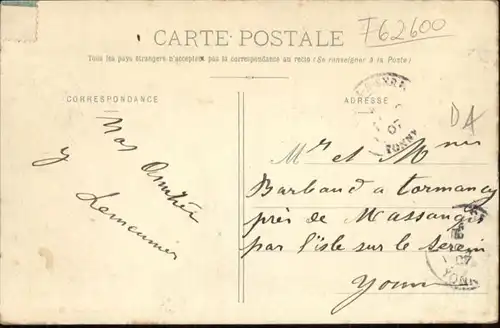 F62600
CARTE POSTALE
Tous les pays étrangers n'acceptent pas la correspondance au recto (Se renseigner à la Poste)
CORRESPONDANCE
ADRESSE
DA
07
YONNE
Mr et Mmes
Barbaud a Tormancy
près de Massangis
par l'isle sur le serein
Yonne
07
YONNE
Nos Amitiés
Lemeunier